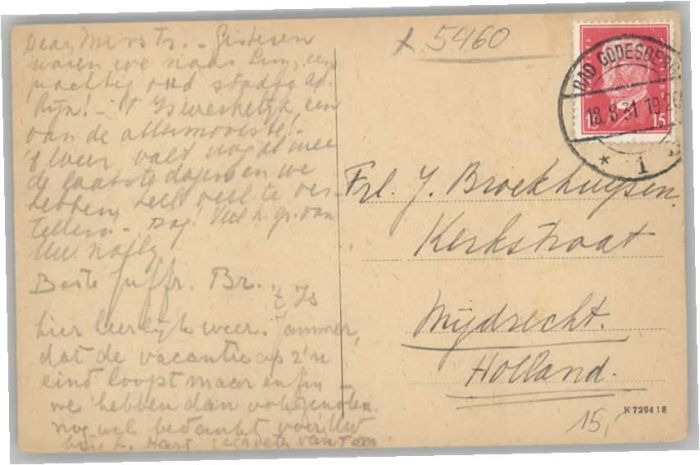 Gisteren
waren we naar Linz, een
prachtig oud stadje ad
Rijn! - 't Is werkelijk een
van de allermooiste!
't Weer valt nogal mee
de laatste dagen en we
hebben heel veel te ver-
tellen. - Dag! Veel h. gr. van
Uw
Beste Juffr. Br. 't Is
hier heerlijk weer. Jammer,
dat de vacantie op z'n
eind loopt maar enfin
we hebben dan ook genoten.
nog wel bedankt voor Uw
Hart. groeten van Tom
x 5460
BAD GODESBERG
18.8.31.19-20
* 1
15 15
Frl. J. Broekhuysen
Kerkstraat
Mijdrecht.
Holland.
K 7294 18
15,